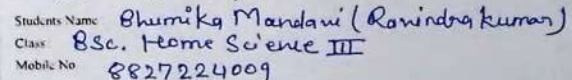 Students Name Bhumika Mandavi (Ravindra kumar)
Class BSc. Home Science III
Mobile No 8827224009